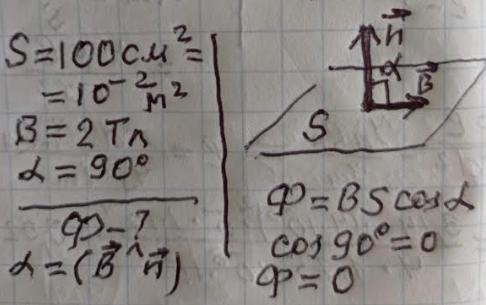 S = 100 см² =
= 10⁻² м²
B = 2 Тл
α = 90°
Ф - ?
α = (B⃗ ^ n⃗)
n⃗
α
B⃗
S
Ф = BS cos α
cos 90° = 0
Ф = 0